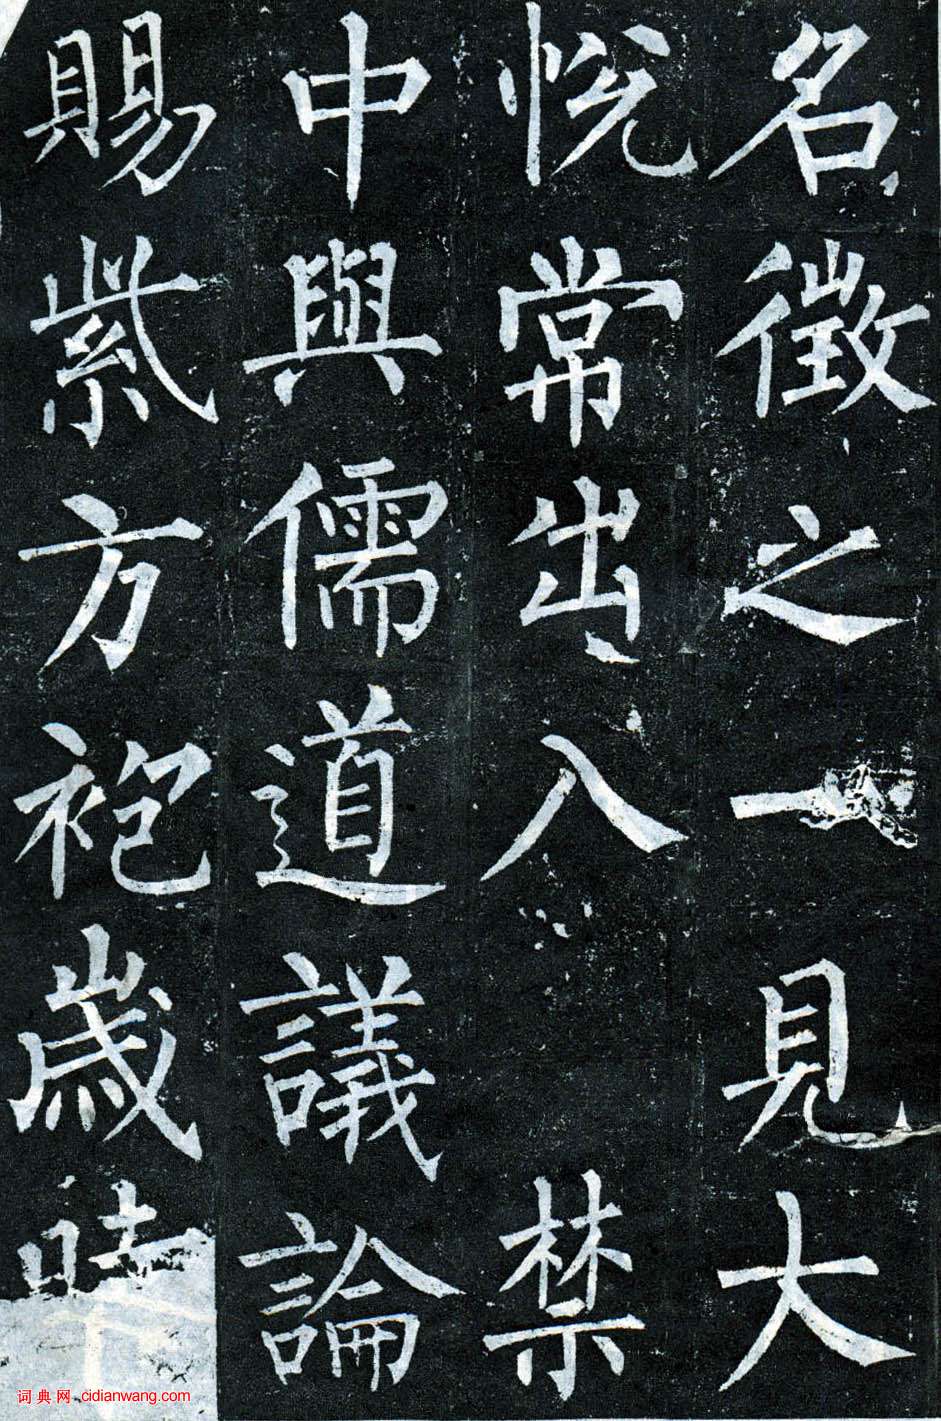 名徵之一見大
悅常出入禁
中與儒道議論
賜紫方袍歲時
词典网 cidianwang.com